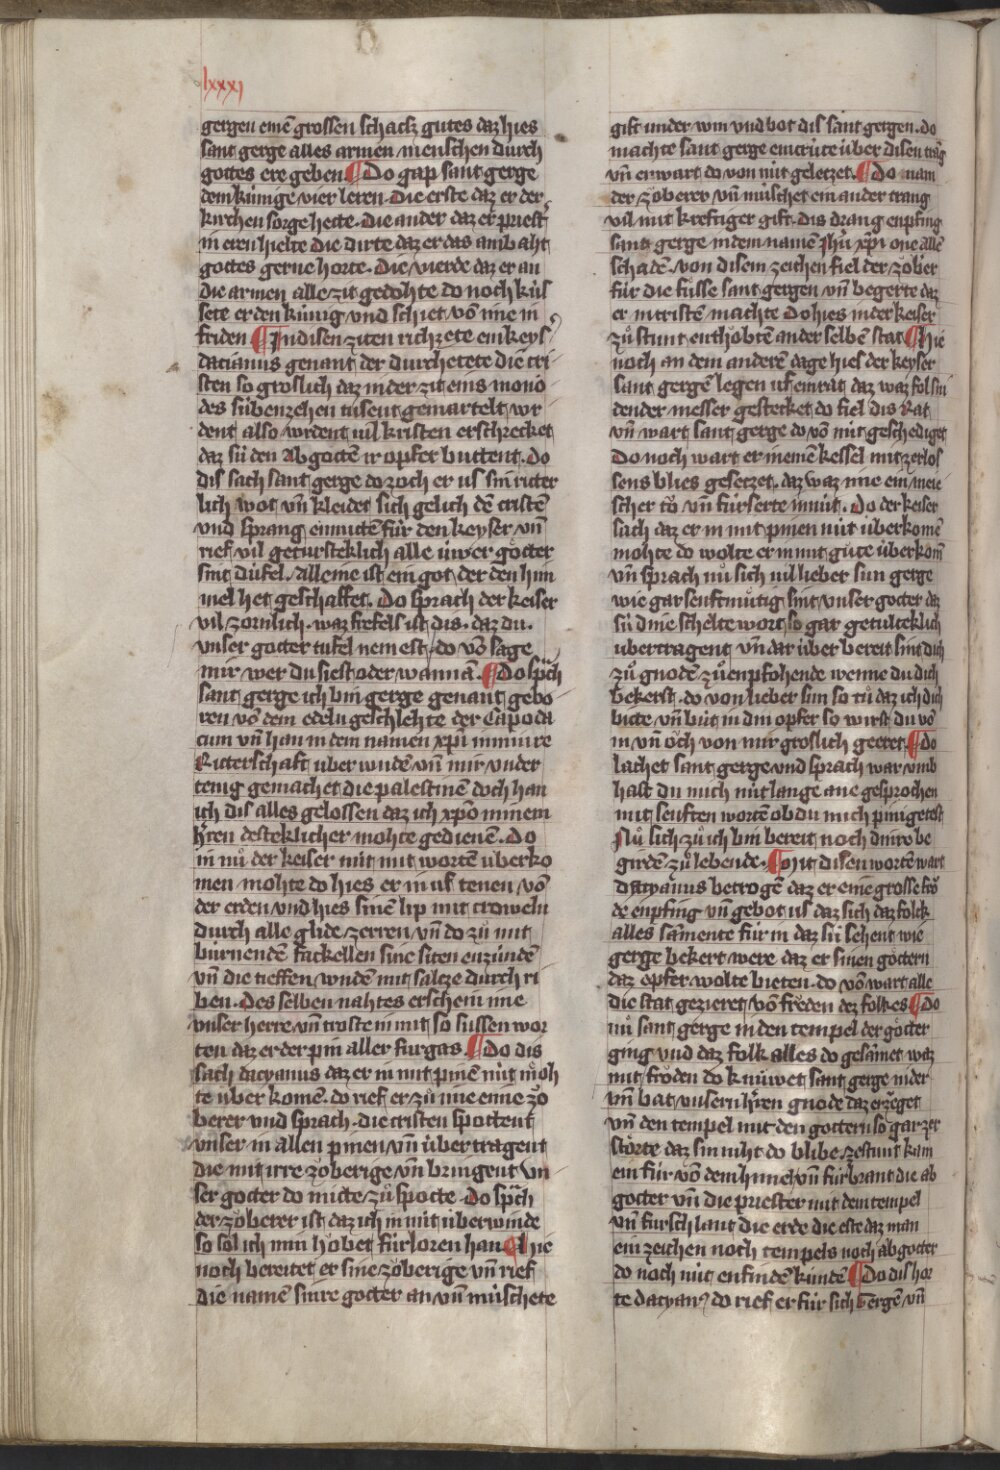 lxxxj
gergen einē grossen schatz gutes daz hies
sant gerge alles armen menschen durch
gottes ere geben ¶ Do gap sant gerge
dem künige vier leren. Die erste daz er der
kirchen sorge hette. die ander daz er priest̕
in eren hielte die dirte daz er das ambaht
gottes gerne horte. die vierde daz er an
die armen alle zit gedohte do noch küs
sete er den künig vnd schiet võ ime in
friden ¶ In disen ziten richzete ein keys̕
dacianus genant der durchetete die cri
sten so groslich daz in der zit eins mono
des sübenzehen tusent gemartelt wr
dent also wrdent vil kristen erschrecket
daz sü den abgottē ir opfer buttent. Do
dis sach sant gerge do zoch er us sin ritter
lich wot vñ kleidet sich gelich dē cristē
vnd sprang enmittē für den keyser vñ
rief vil getursteklich alle üwer götter
sint düfel. alleine ist ein got der den him
mel het geschaffet. Do sprach der keiser
vil zornlich. waz frefels ist dis. daz du.
vnser gotter tufel nemest. do võ sage
mir wer du siest oder wannā. ¶ Do spͣch
sant gerge ich bin gerge genant gebo
ren võ dem edeln geschlehte der Capoda
cum vñ han in dem namen xp̄i minnire
Ritterschaft uber wndē vñ mir vnder
tenig gemachet die palestinē doch han
ich dis alles gelossen daz ich xp̄o minem
h̕ren desteklicher mohte gedienē. Do
in nů der keiser nüt mit wortē uberko
men mohte do hies er in uf tenen võ
der erden vnd hies sinē lip mit croweln
durch alle glide zerren vñ do zů mit
bürnendē fackellen sine siten enzündē
vñ die tieffen wndē mit saltze durch ri
ben. Des selben nahtes erschein ime
vnser herre vñ troste in mit so süssen wor
ten daz er der pin aller furgas. ¶ Do dis
sach dacyanus daz er in mit pinē nüt möh
te über komē. do rief er zů ime eime zö
berer vnd sprach. die cristen spottent
vnser in allen pinen vñ übertragent
die mit irre zöberige vñ bringent vn
ser gotter do mitte zů spotte. Do spͣch
der zöberer ist daz ich in nüt überwinde
so sol ich min höbet fürloren han ¶ hie
noch bereitet er sine zöberige vñ rief
die namē sinre gotter an vñ müschete
gift under win vnd bot dis sant gergen. do
machte sant gerge ein crüte über disen trāg
vñ er wart do von nüt geletzet. ¶ Do nam
der zöberer vñ müschet ein ander trang
vil mit kreftiger gift. dis drang enpfing
sant gerge in dem namē Jhū xp̄i one allē
schadē. von disem zeichen fiel der zöber
für die füsse sant gergen vñ begerte daz
er in cristē machte do hies in der keiser
zů stunt enthöbtē an der selben stat ¶ hie
noch an dem anderē dage hies der keyser
sant gergē legen uf ein rat daz waz fol sni
dender messer gestecket do fiel dis Rat
vñ wart sant gerge do võ nüt geschediget
Do noch wart er in einē kessel mit zerlos
sens blies gesetzet. daz waz ime ein meie
scher tö vñ fürserte in nüt. Do der keiser
sach daz er in mit pinen nüt überkomē
mohte do wolte er in mit güte überkom̄
vñ sprach nů sich vil lieber sun gerge
wie gar senftmütig sint vnser gotter daz
sü dine schelte wort so gar getulteklich
ubertragent vñ dar über bereit sint dich
zů gnodē zů enpfohende wenne du dich
bekerst. do von lieber sun so tů daz ich dich
bitte vñ büt in din opfer so wirst du võ
in vñ öch von mir groslich geeret. ¶ Do
lachet sant gerge vnd sprach war vmb
hast du mich nüt lange ane gesprochen
mit senften wortē ob du mich pinigetest
Nů sich zů ich bin bereit noch dinre be
girdē zů lebende. ¶ Mit disen wortē wart
dacyanus betrogē daz er eine grosse frö
de enpfing vñ gebot us daz sich daz folck
alles samente für in daz sü sehent wie
gerge bekert were daz er sinen göttern
daz opfer wolte bieten. do võ wart alle
die stat gezieret võ fröden dez folkes ¶ Do
nů sant gerge in den tempel der götter
ging vnd daz folk alles do gesāmet waz
mit fröden do knüwet sant gerge nider
vñ bat vnsern h̕ren gnode daz er zeget
vñ den tempel mit den gottern so gar zer
störte daz sin niht do blibe. zestunt kam
ein für võ dem himel vñ fürbrant die ab
gotter vñ die priester mit dem tempel
vñ furschlant die erde die este daz man
ein zeichen noch tempels noch abgotter
do noch nüt enfindē kundē ¶ Do dis hor
te dacyanꝰ do rief er für sich Gergē vñ